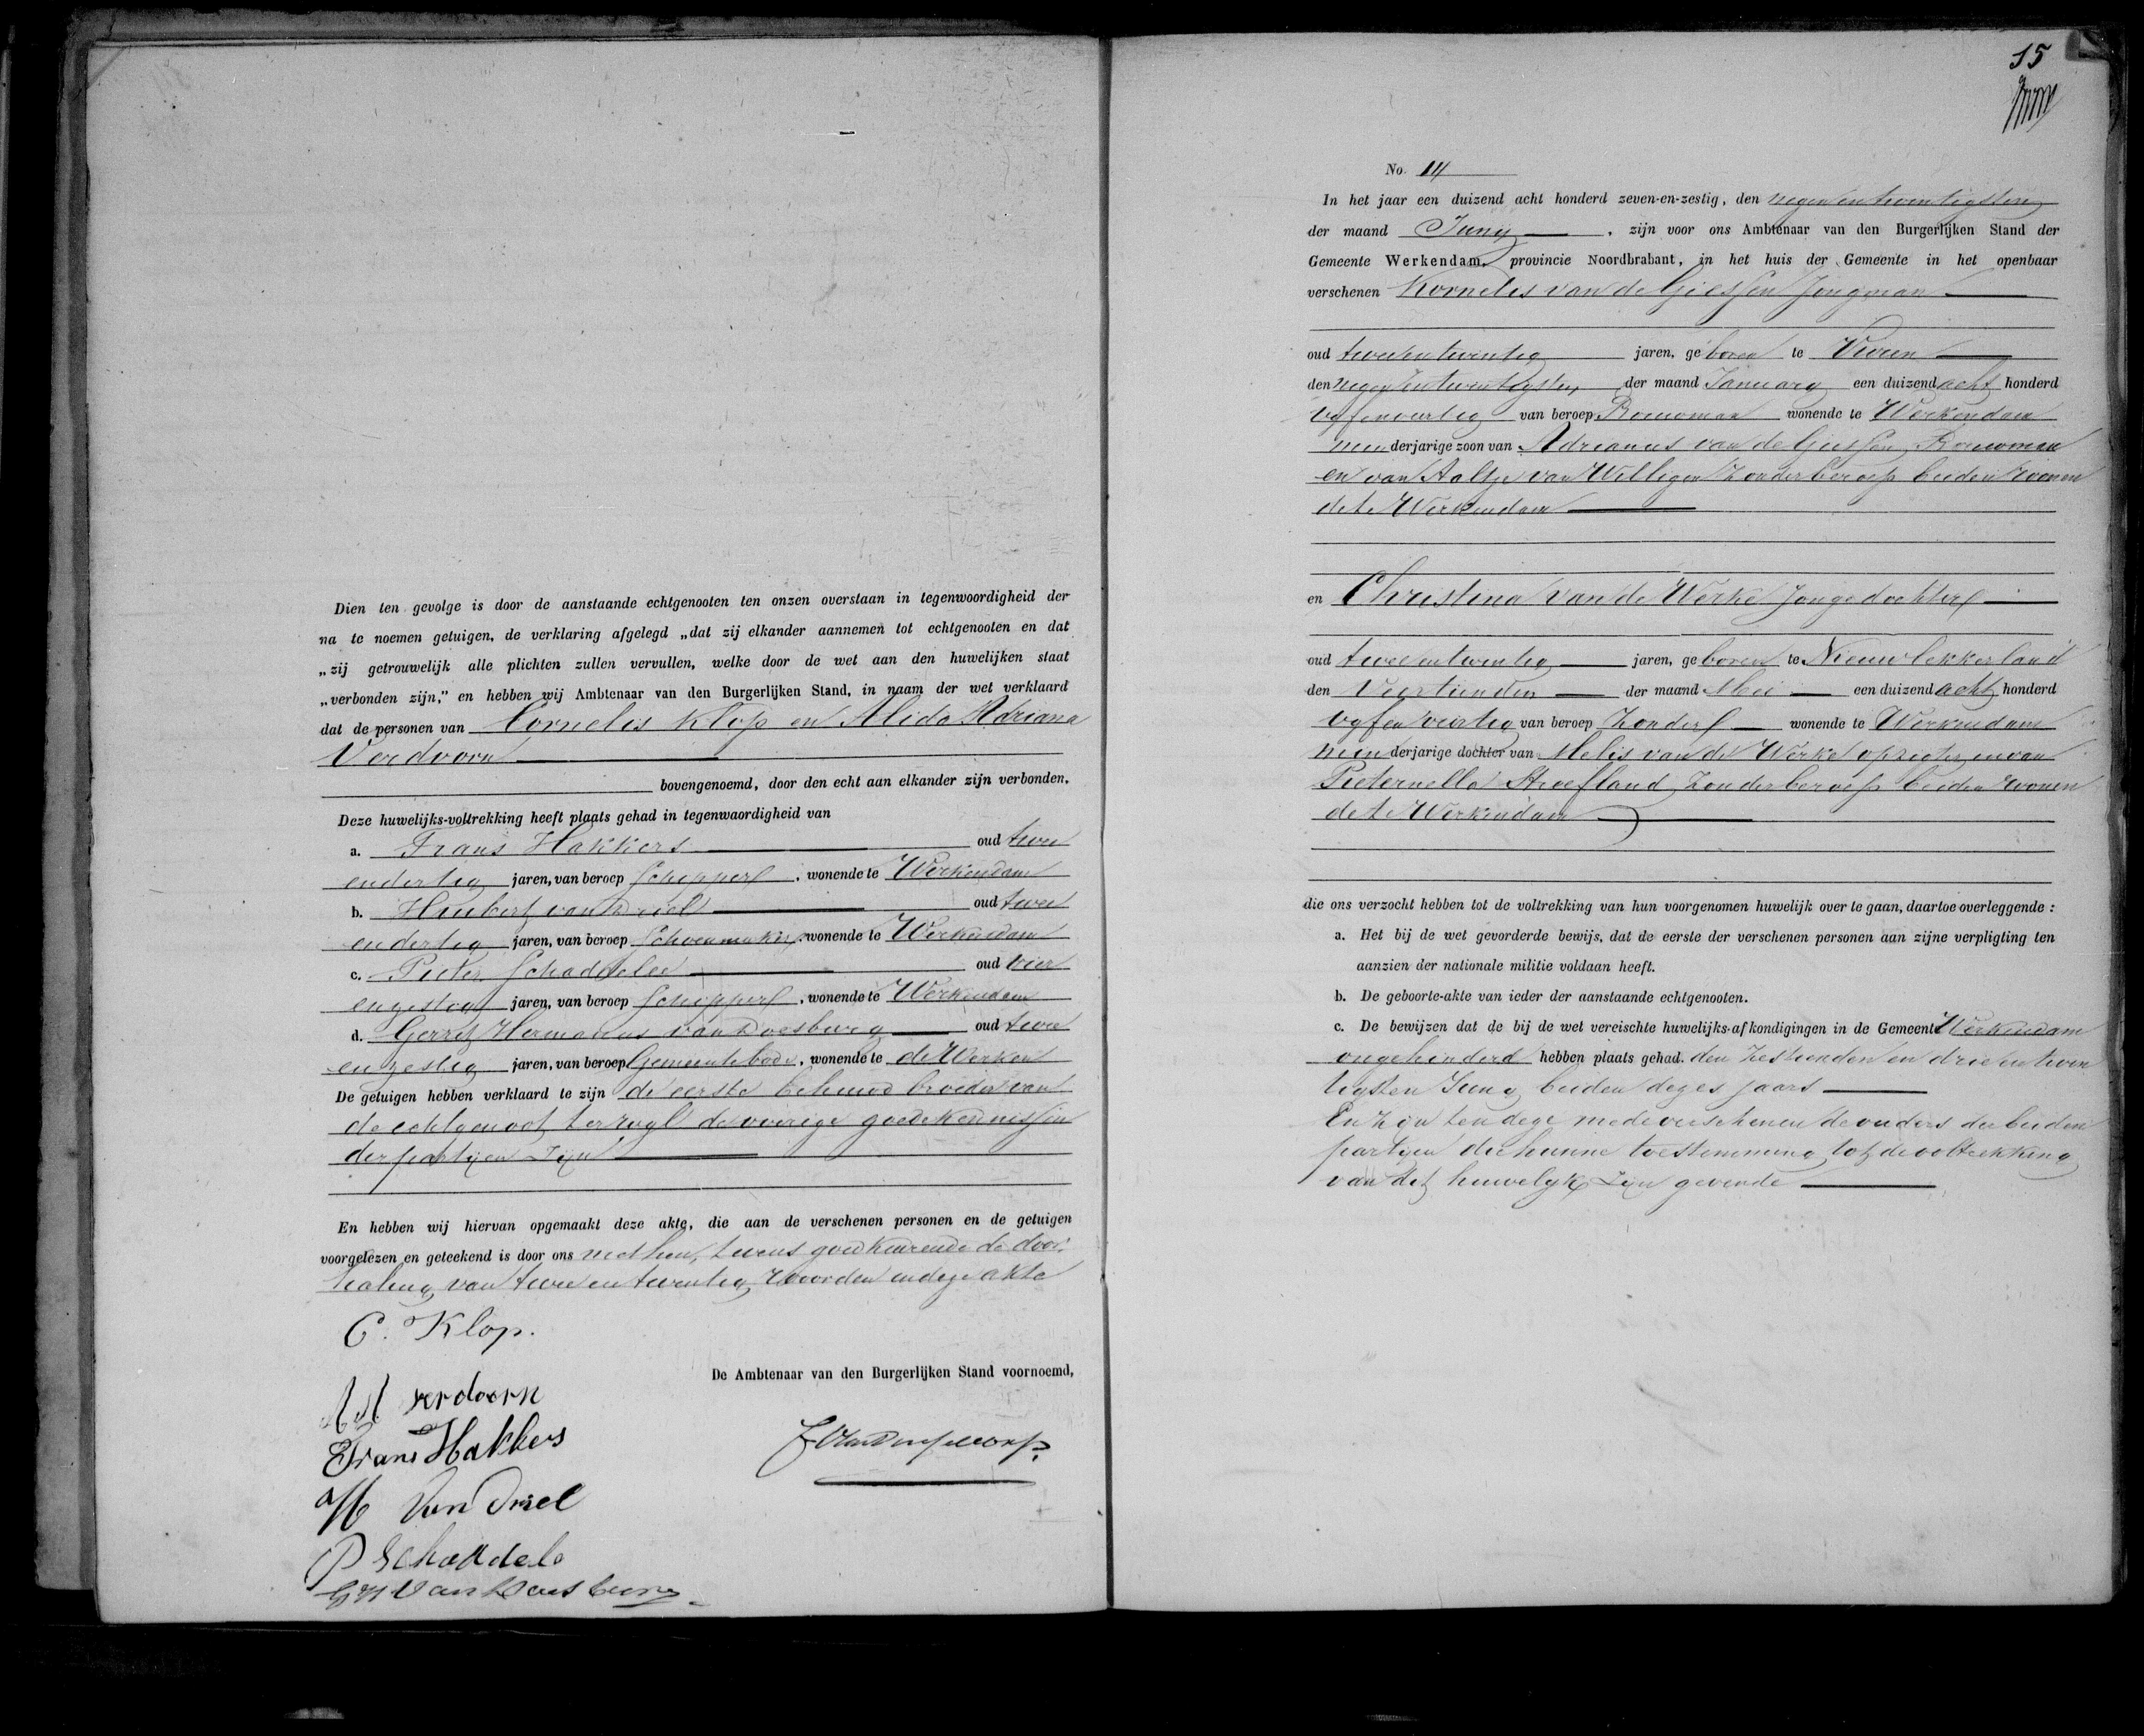 Dien ten gevolge is door de aanstaande echtgenooten ten onzen overstaan in tegenwoordigheid der
na te noemen getuigen, de verklaring afgelegd „dat zij elkander aannemen tot echtgenooten en dat
„zij getrouwelijk alle plichten zullen vervullen, welke door de wet aan den huwelijken staat
„verbonden zijn,” en hebben wij Ambtenaar van den Burgerlijken Stand, in naam der wet verklaard
dat de personen van Cornelis Klop en Alida Adriana
Verdoorn
bovengenoemd, door den echt aan elkander zijn verbonden.
Deze huwelijks-voltrekking heeft plaats gehad in tegenwoordigheid van
a. Frans Hakkers oud twee
endertig jaren, van beroep Schipper , wonende te Werkendam
b. Huibert van Driel oud twee
endertig jaren, van beroep Schoenmaker , wonende te Werkendam
c. Pieter Schaddelee oud vier
enzestig jaren, van beroep Schipper , wonende te Werkendam
d. Gerrit Hermanus van Doesburg oud twee
enzestig jaren, van beroep Gemeentebode , wonende te de Werken
De getuigen hebben verklaard te zijn de eerste behuwd broeder van
de echtgenoot terwyl de overige goede kennissen
der partijen zijn
En hebben wij hiervan opgemaakt deze akte, die aan de verschenen personen en de getuigen
voorgelezen en geteekend is door ons met hen, tevens goedkeurende de door:
haling van twee en twentig woorden in deze akte
C. Klop.
De Ambtenaar van den Burgerlijken Stand voornoemd,
A A verdoorn
Frans Hakkers
H Van Driel
P Schaddele
G H Van Doesburg
15
No. 14
In het jaar een duizend acht honderd zeven-en-zestig, den negenentwentigsten
der maand Juny , zijn voor ons Ambtenaar van den Burgerlijken Stand der
Gemeente Werkendam, provincie Noordbrabant, in het huis der Gemeente in het openbaar
verschenen Kornelis van de Giessen Jongman
oud tweeentwintig jaren, geboren te Vuren
den negenentwentigsten der maand January een duizend acht honderd
vyfenveertig van beroep Bouwman wonende te Werkendam
minderjarige zoon van Adrianus van de Giessen Bouwman
en van Aaltje van Willigen zonder beroep beiden wonen
de te Werkendam
en Christina van de Werke Jongedochter
oud tweeentwintig jaren, geboren te Nieuwlekkerland
den Veertienden der maand Mei een duizend acht honderd
vyfenveertig van beroep Zonder wonende te Werkendam
minderjarige dochter van Melis van de Werke opzigter en van
Pieternella Stroefland zonder beroep beiden wonen
de te Werkendam
die ons verzocht hebben tot de voltrekking van hun voorgenomen huwelijk over te gaan, daartoe overleggende :
a. Het bij de wet gevorderde bewijs, dat de eerste der verschenen personen aan zijne verpligting ten
aanzien der nationale militie voldaan heeft.
b. De geboorte-akte van ieder der aanstaande echtgenooten.
c. De bewijzen dat de bij de wet vereischte huwelijks-afkondigingen in de Gemeente Werkendam
ongehinderd hebben plaats gehad. den zestienden en drie en twin
tigsten Juny beiden dezes jaars
En zijn ten deze mede verschenen de ouders der beiden
partyen die hunne toestemming tot de voltrekking
van dit huwelyk zijn gevende